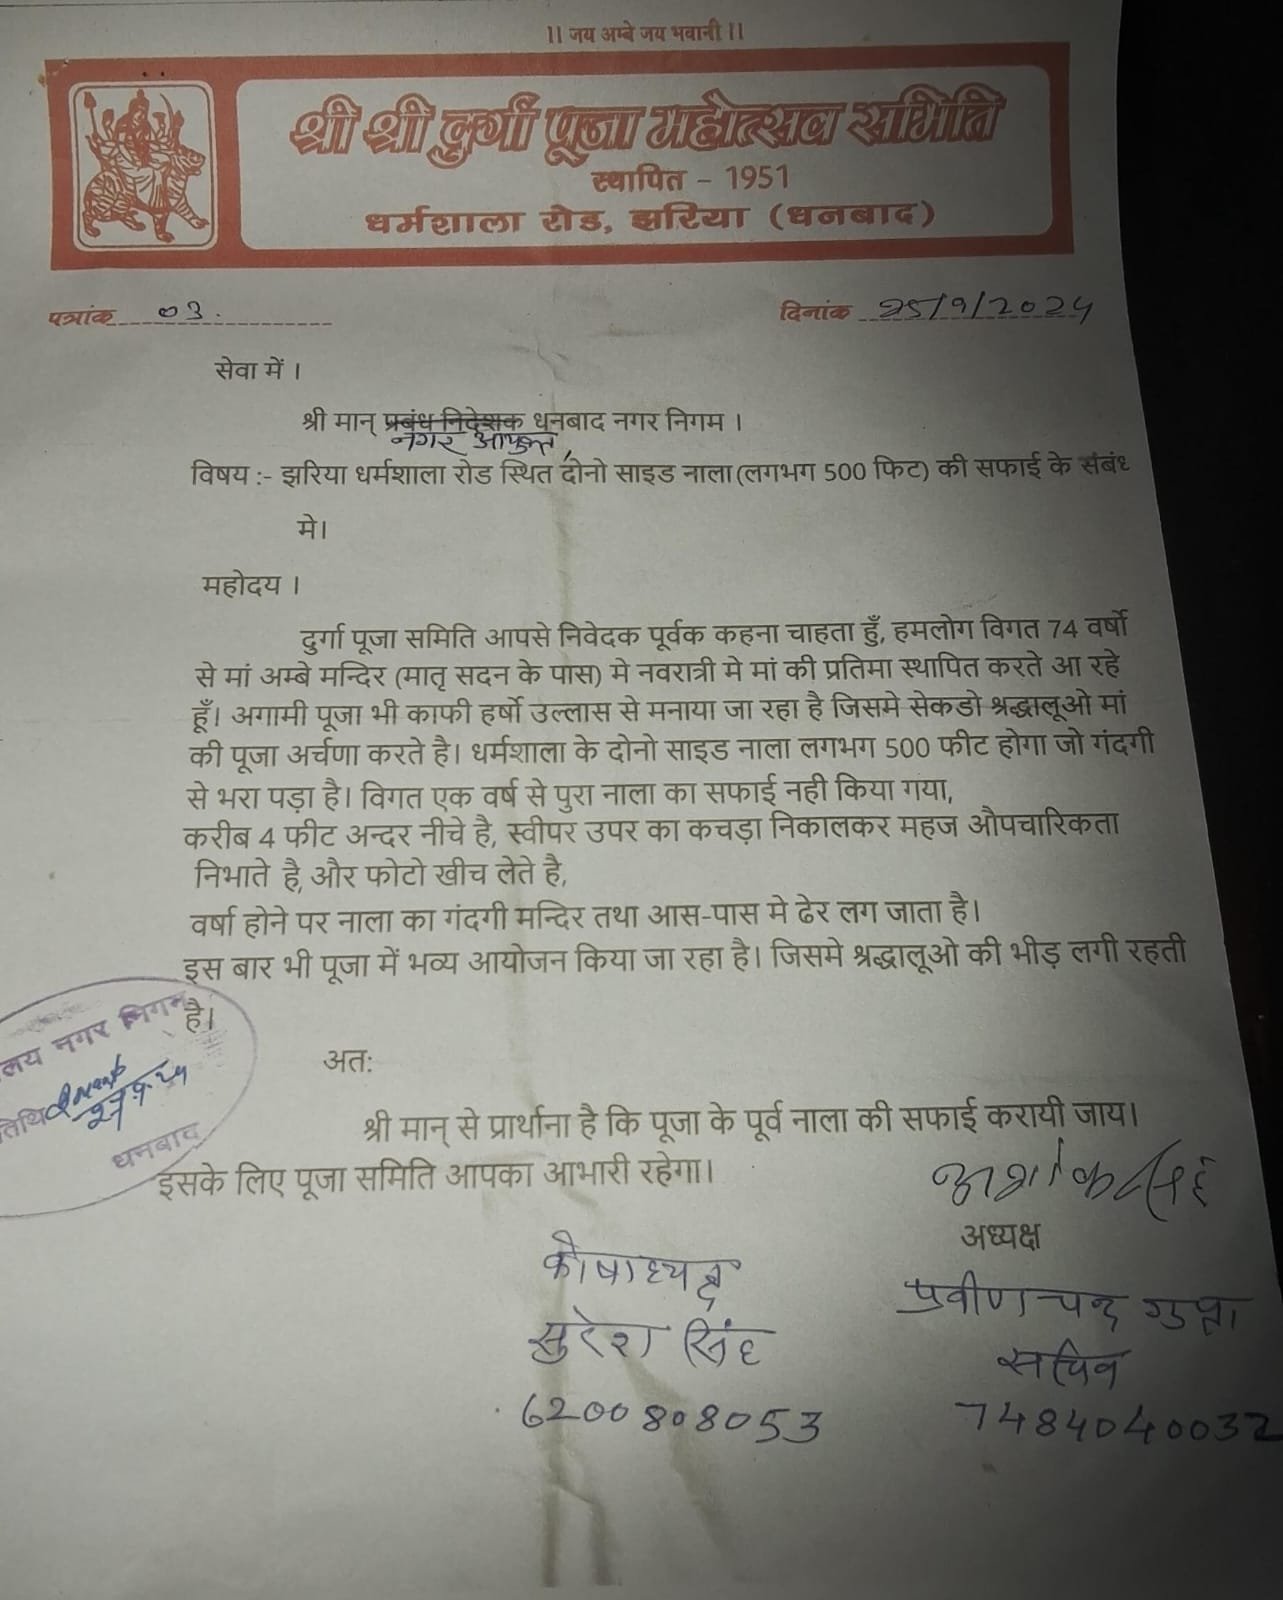 ।। जय अम्बे जय भवानी ।।
श्री श्री दुर्गा पूजा महोत्सव समिति
स्थापित - 1951
धर्मशाला रोड, झरिया (धनबाद)
पत्रांक 03. दिनांक 25/9/2024
सेवा में ।
श्री मान् प्रबंध निदेशक धनबाद नगर निगम ।
नगर आयुक्त,
विषय :- झरिया धर्मशाला रोड स्थित दोनो साइड नाला (लगभग 500 फिट) की सफाई के संबंध
मे।
महोदय ।
दुर्गा पूजा समिति आपसे निवेदक पूर्वक कहना चाहता हुँ, हमलोग विगत 74 वर्षो
से मां अम्बे मन्दिर (मातृ सदन के पास) मे नवरात्री मे मां की प्रतिमा स्थापित करते आ रहे
हूँ। अगामी पूजा भी काफी हर्षो उल्लास से मनाया जा रहा है जिसमे सेकडो श्रद्धालूओ मां
की पूजा अर्चणा करते है। धर्मशाला के दोनो साइड नाला लगभग 500 फीट होगा जो गंदगी
से भरा पड़ा है। विगत एक वर्ष से पुरा नाला का सफाई नही किया गया,
करीब 4 फीट अन्दर नीचे है, स्वीपर उपर का कचड़ा निकालकर महज औपचारिकता
निभाते है, और फोटो खीच लेते है,
वर्षा होने पर नाला का गंदगी मन्दिर तथा आस-पास मे ढेर लग जाता है।
इस बार भी पूजा में भव्य आयोजन किया जा रहा है। जिसमे श्रद्धालूओ की भीड़ लगी रहती
है।
लय नगर निगम
तिथि
धनबाद
अतः
श्री मान् से प्रार्थाना है कि पूजा के पूर्व नाला की सफाई करायी जाय।
इसके लिए पूजा समिति आपका आभारी रहेगा।
अध्यक्ष
कोषाध्यक्ष
सुरेश सिंह
6200808053
प्रवीण चन्द्र गुप्ता
सचिव
7484040032